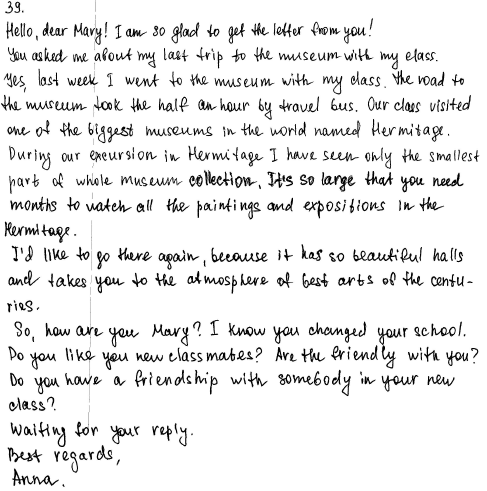 39.
Hello, dear Mary! I am so glad to get the letter from you!
You asked me about my last trip to the museum with my class.
Yes, last week I went to the museum with my class. The road to
the museum took the half an hour by travel bus. Our class visited
one of the biggest museums in the world named Hermitage.
During our excursion in Hermitage I have seen only the smallest
part of whole museum collection. It's so large that you need
months to watch all the paintings and expositions in the
Hermitage.
I'd like to go there again, because it has so beautiful halls
and takes you to the atmosphere of best arts of the centu-
ries.
So, how are you Mary? I know you changed your school.
Do you like you new classmates? Are the friendly with you?
Do you have a friendship with somebody in your new
class?
Waiting for your reply.
Best regards,
Anna.